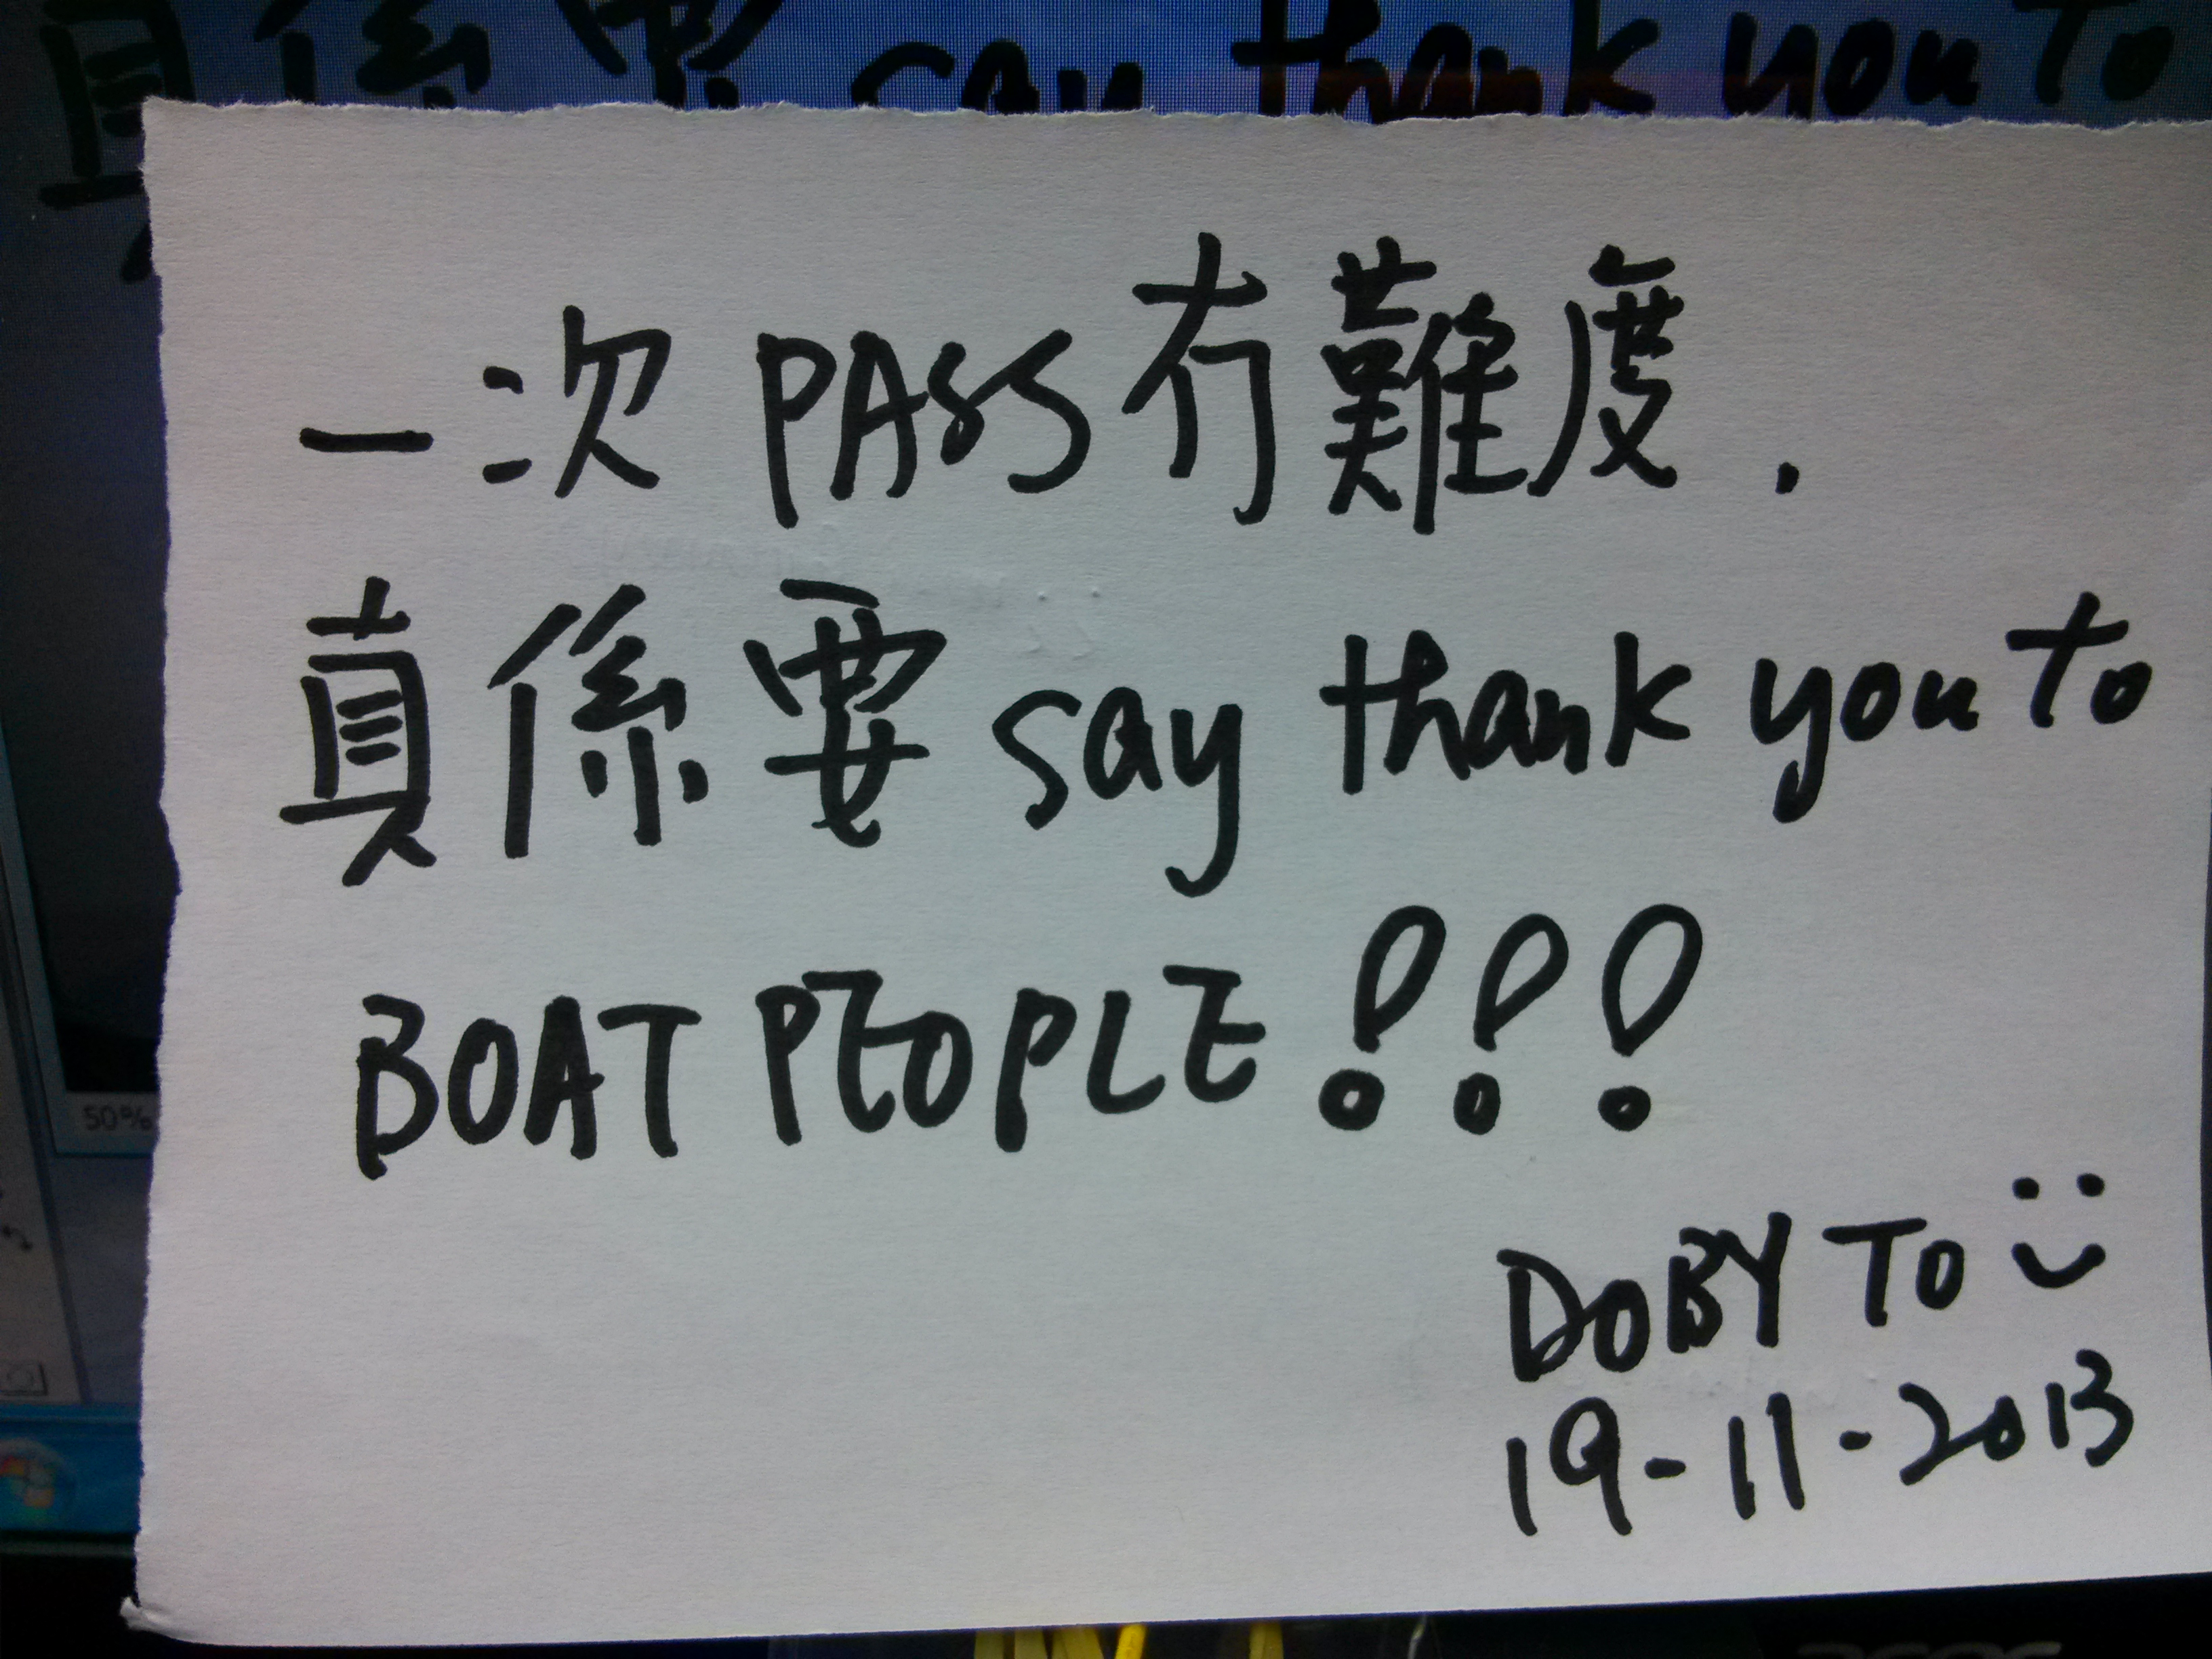 真係要 say thank you to
一次 PASS 冇難度.
真係要 say thank you to
BOAT PEOPLE!!!
DOBY TO :)
19-11-2013
50%
acer